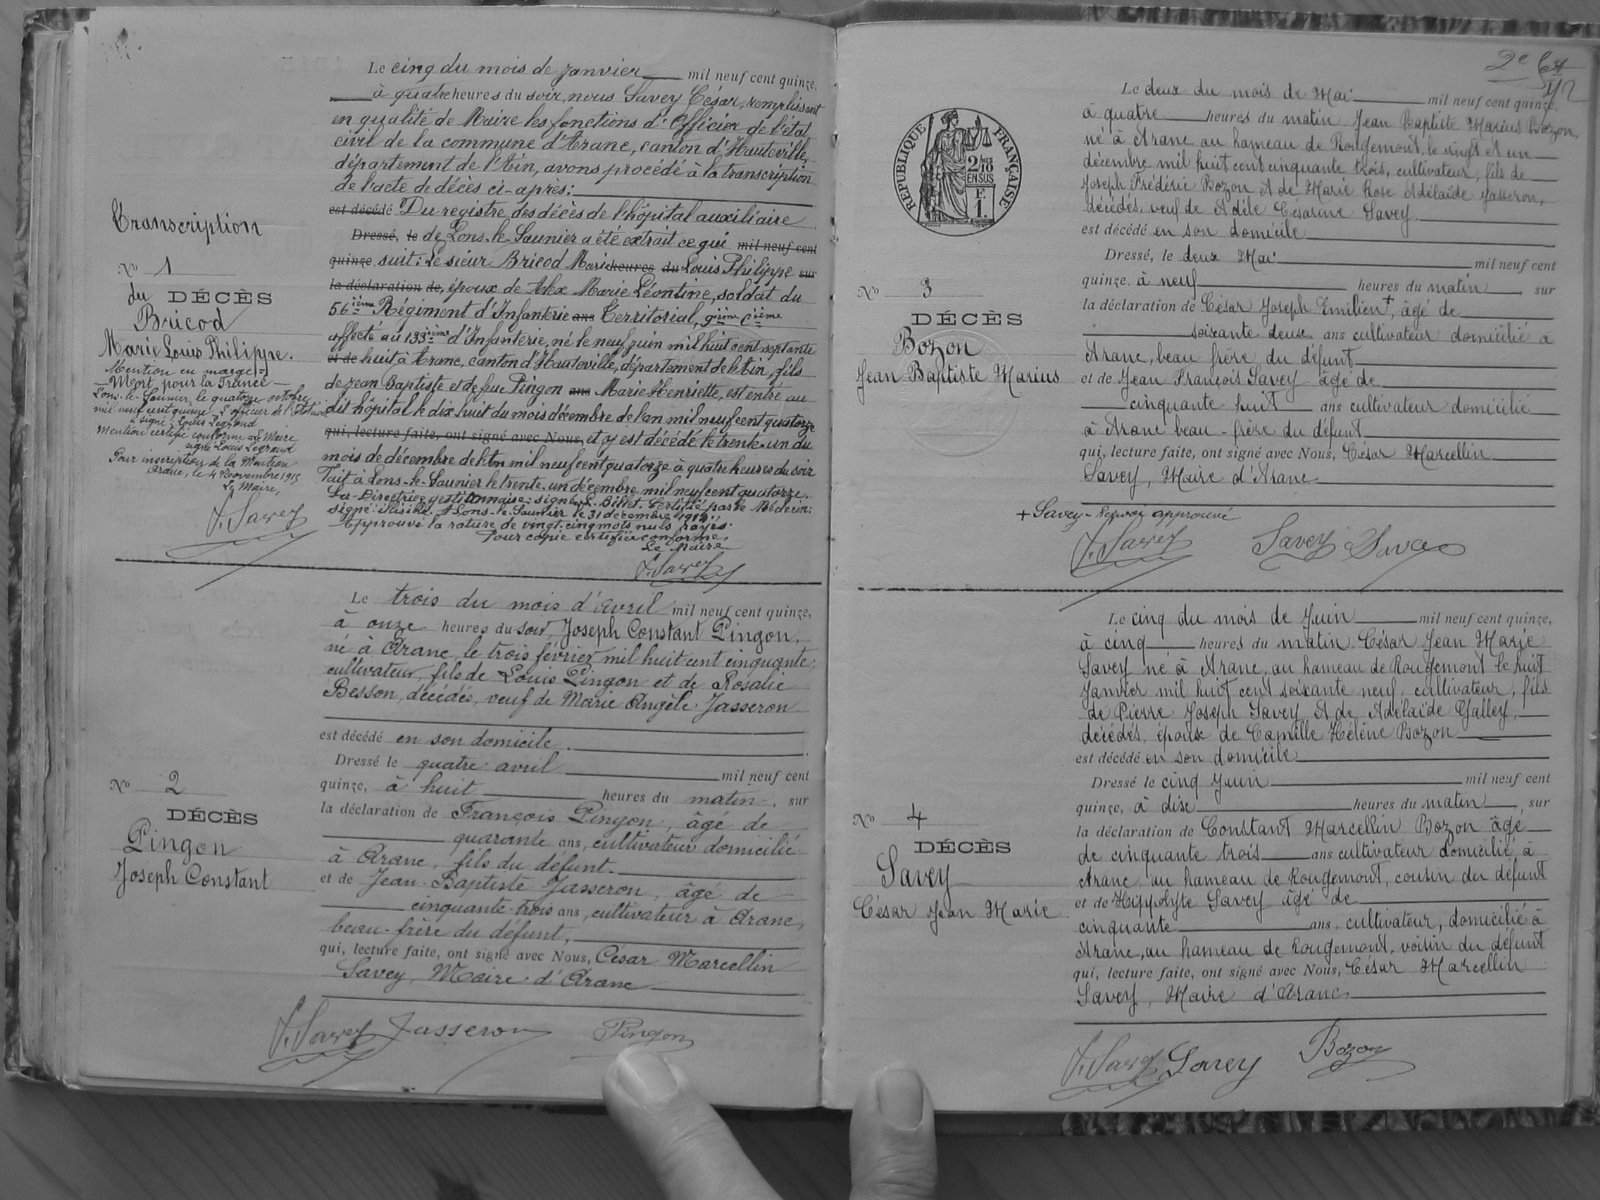 Transcription
N° 1
du DÉCÈS
Bricod
Marie Louis Philippe.
Mention en marge
— Mort pour la France —
Lons-le-Saunier, le quatorze octobre
mil neuf cent quinze. L'officier de l'état civil
signé: Louis Legrand
Mention certifié conforme au Maire
signé Louis Legrand
Pour inscription de la Mention
Arane, le 4 Novembre 1915
Le Maire,
J. Savey
Le cinq du mois de janvier mil neuf cent quinze,
à quatre heures du soir, nous Savey César, remplissant
en qualité de Maire les fonctions d'Officier de l'état
civil de la commune d'Arane, canton d'Hauteville,
département de l'Ain, avons procédé à la transcription
de l'acte de décès ci-après:
est décédé Du registre des décès de l'hôpital auxiliaire
Dressé, le de Lons-le-Saunier a été extrait ce qui mil neuf cent
quinze suit: Le sieur Bricod Marie heures du Louis Philippe sur
la déclaration de, époux de Alex Marie Léontine, soldat du
56ième Régiment d'Infanterie ans Territorial, 9ième Cième
affecté au 133ième d'Infanterie, né le neuf juin mil huit cent septante
et de huit à Arane, canton d'Hauteville, département de l'Ain, fils
de Jean Baptiste et de feue Pingon ans Marie Henriette, est entré au
dit hôpital le dix huit du mois décembre de l'an mil neuf cent quatorze
qui, lecture faite, ont signé avec Nous, et y est décédé le trente-un du
mois de décembre de l'an mil neuf cent quatorze à quatre heures du soir
Fait à Lons-le-Saunier le trente-un décembre mil neuf cent quatorze.
La Directrice gestionnaise: signé, Billet. Certifié par le Médecin:
signé: illisible. A Lons-le-Saunier le 31 décembre 1914.
Approuvé la rature de vingt-cinq mots nuls rayés.
Pour copie certifiée conforme,
Le Maire
J. Savey
N° 2
DÉCÈS
Pingon
Joseph Constant
Le trois du mois d'avril mil neuf cent quinze,
à onze heures du soir, Joseph Constant Pingon,
né à Arane, le trois février mil huit cent cinquante,
cultivateur, fils de Louis Pingon et de Rosalie
Besson, décédés, veuf de Marie Angèle Jasseron
est décédé en son domicile.
Dressé le quatre avril mil neuf cent
quinze, à huit heures du matin, sur
la déclaration de François Pingon, âgé de
quarante ans, cultivateur domicilié
à Arane, fils du défunt.
et de Jean-Baptiste Jasseron, âgé de
cinquante-trois ans, cultivateur à Arane,
beau-frère du défunt,
qui, lecture faite, ont signé avec Nous, César Marcellin
Savey, Maire d'Arane
J. Savey Jasseron Pingon
2e
RÉPUBLIQUE FRANÇAISE
2/10
EN SUS
F.
1.
N° 3
DÉCÈS
Bozon
Jean Baptiste Marius
Le deux du mois de Mai mil neuf cent quinze,
à quatre heures du matin Jean Baptiste Marius Bozon
né à Arane au hameau de Rougemont, le vingt et un
décembre mil huit cent cinquante trois, cultivateur, fils de
Joseph Frédéric Bozon et de Marie Rose Adélaïde Jasseron,
décédés, veuf de Adèle Césarine Savey.
est décédé en son domicile
Dressé, le deux Mai mil neuf cent
quinze, à neuf heures du matin, sur
la déclaration de César Joseph Emilien+, âgé de
soixante deux ans cultivateur domicilié à
Arane, beau frère du défunt
et de Jean François Savey âgé de
cinquante huit ans cultivateur domicilié
à Arane beau-frère du défunt
qui, lecture faite, ont signé avec Nous, César Marcellin
Savey, Maire d'Arane.
+ Savey - Renvoi approuvé
J. Savey Savey Savey
N° 4
DÉCÈS
Savey
César Jean Marie
Le cinq du mois de Juin mil neuf cent quinze,
à cinq heures du matin César Jean Marie
Savey né à Arane, au hameau de Rougemont le huit
Janvier mil huit cent soixante neuf, cultivateur, fils
de Pierre Joseph Savey et de Adélaïde Gallet,
décédés, époux de Camille Hélène Bozon
est décédé en son domicile
Dressé le cinq Juin mil neuf cent
quinze, à dix heures du matin, sur
la déclaration de Constant Marcellin Bozon âgé
de cinquante trois ans cultivateur domicilié à
Arane au hameau de Rougemont, cousin du défunt
et de Hippolyte Savey âgé de
cinquante ans, cultivateur, domicilié à
Arane, au hameau de Rougemont, voisin du défunt
qui, lecture faite, ont signé avec Nous, César Marcellin
Savey, Maire d'Arane.
J. Savey Savey Bozon